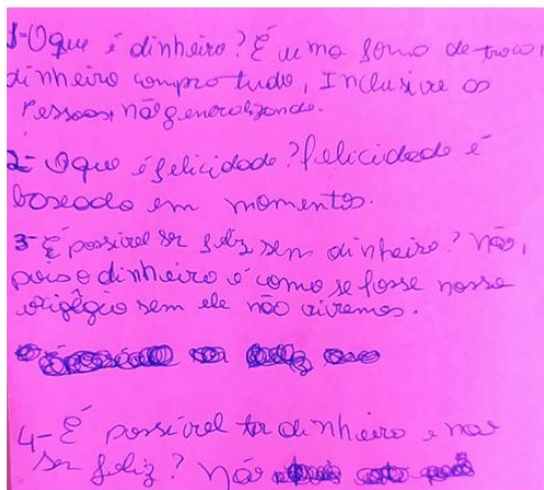 1-O que é dinheiro? É uma forma de troca,
dinheiro compra tudo, Inclusive as
Pessoas, não generalizando.
2- O que é felicidade? Felicidade é
baseada em momentos.
3- É possível ser feliz sem dinheiro? Não,
pois o dinheiro é como se fosse nosso
oxigêgio sem ele não vivemos.
4- É possível ter dinheiro e não
ser feliz? Não